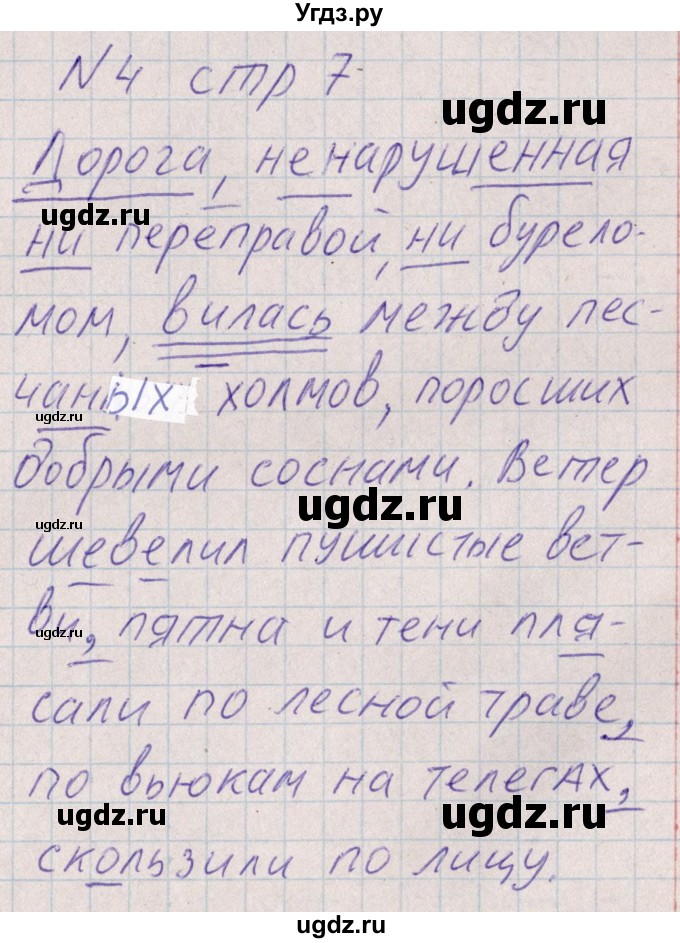 Угдз.ру
N4 стр 7
ugdz.ru
Дорога, ненарушенная
ugdz.ru
ни переправой, ни бурело-
мом, вилась между пес-
чаных холмов, поросших
ugdz.ru
добрыми соснами. Ветер
ugdz.ru
шевелил пушистые вет-
ugdz.ru
ви, пятна и тени пля-
сали по лесной траве,
по вьюкам на телегах,
ugdz.ru
ugdz.ru
скользили по лицу.
ugdz.ru